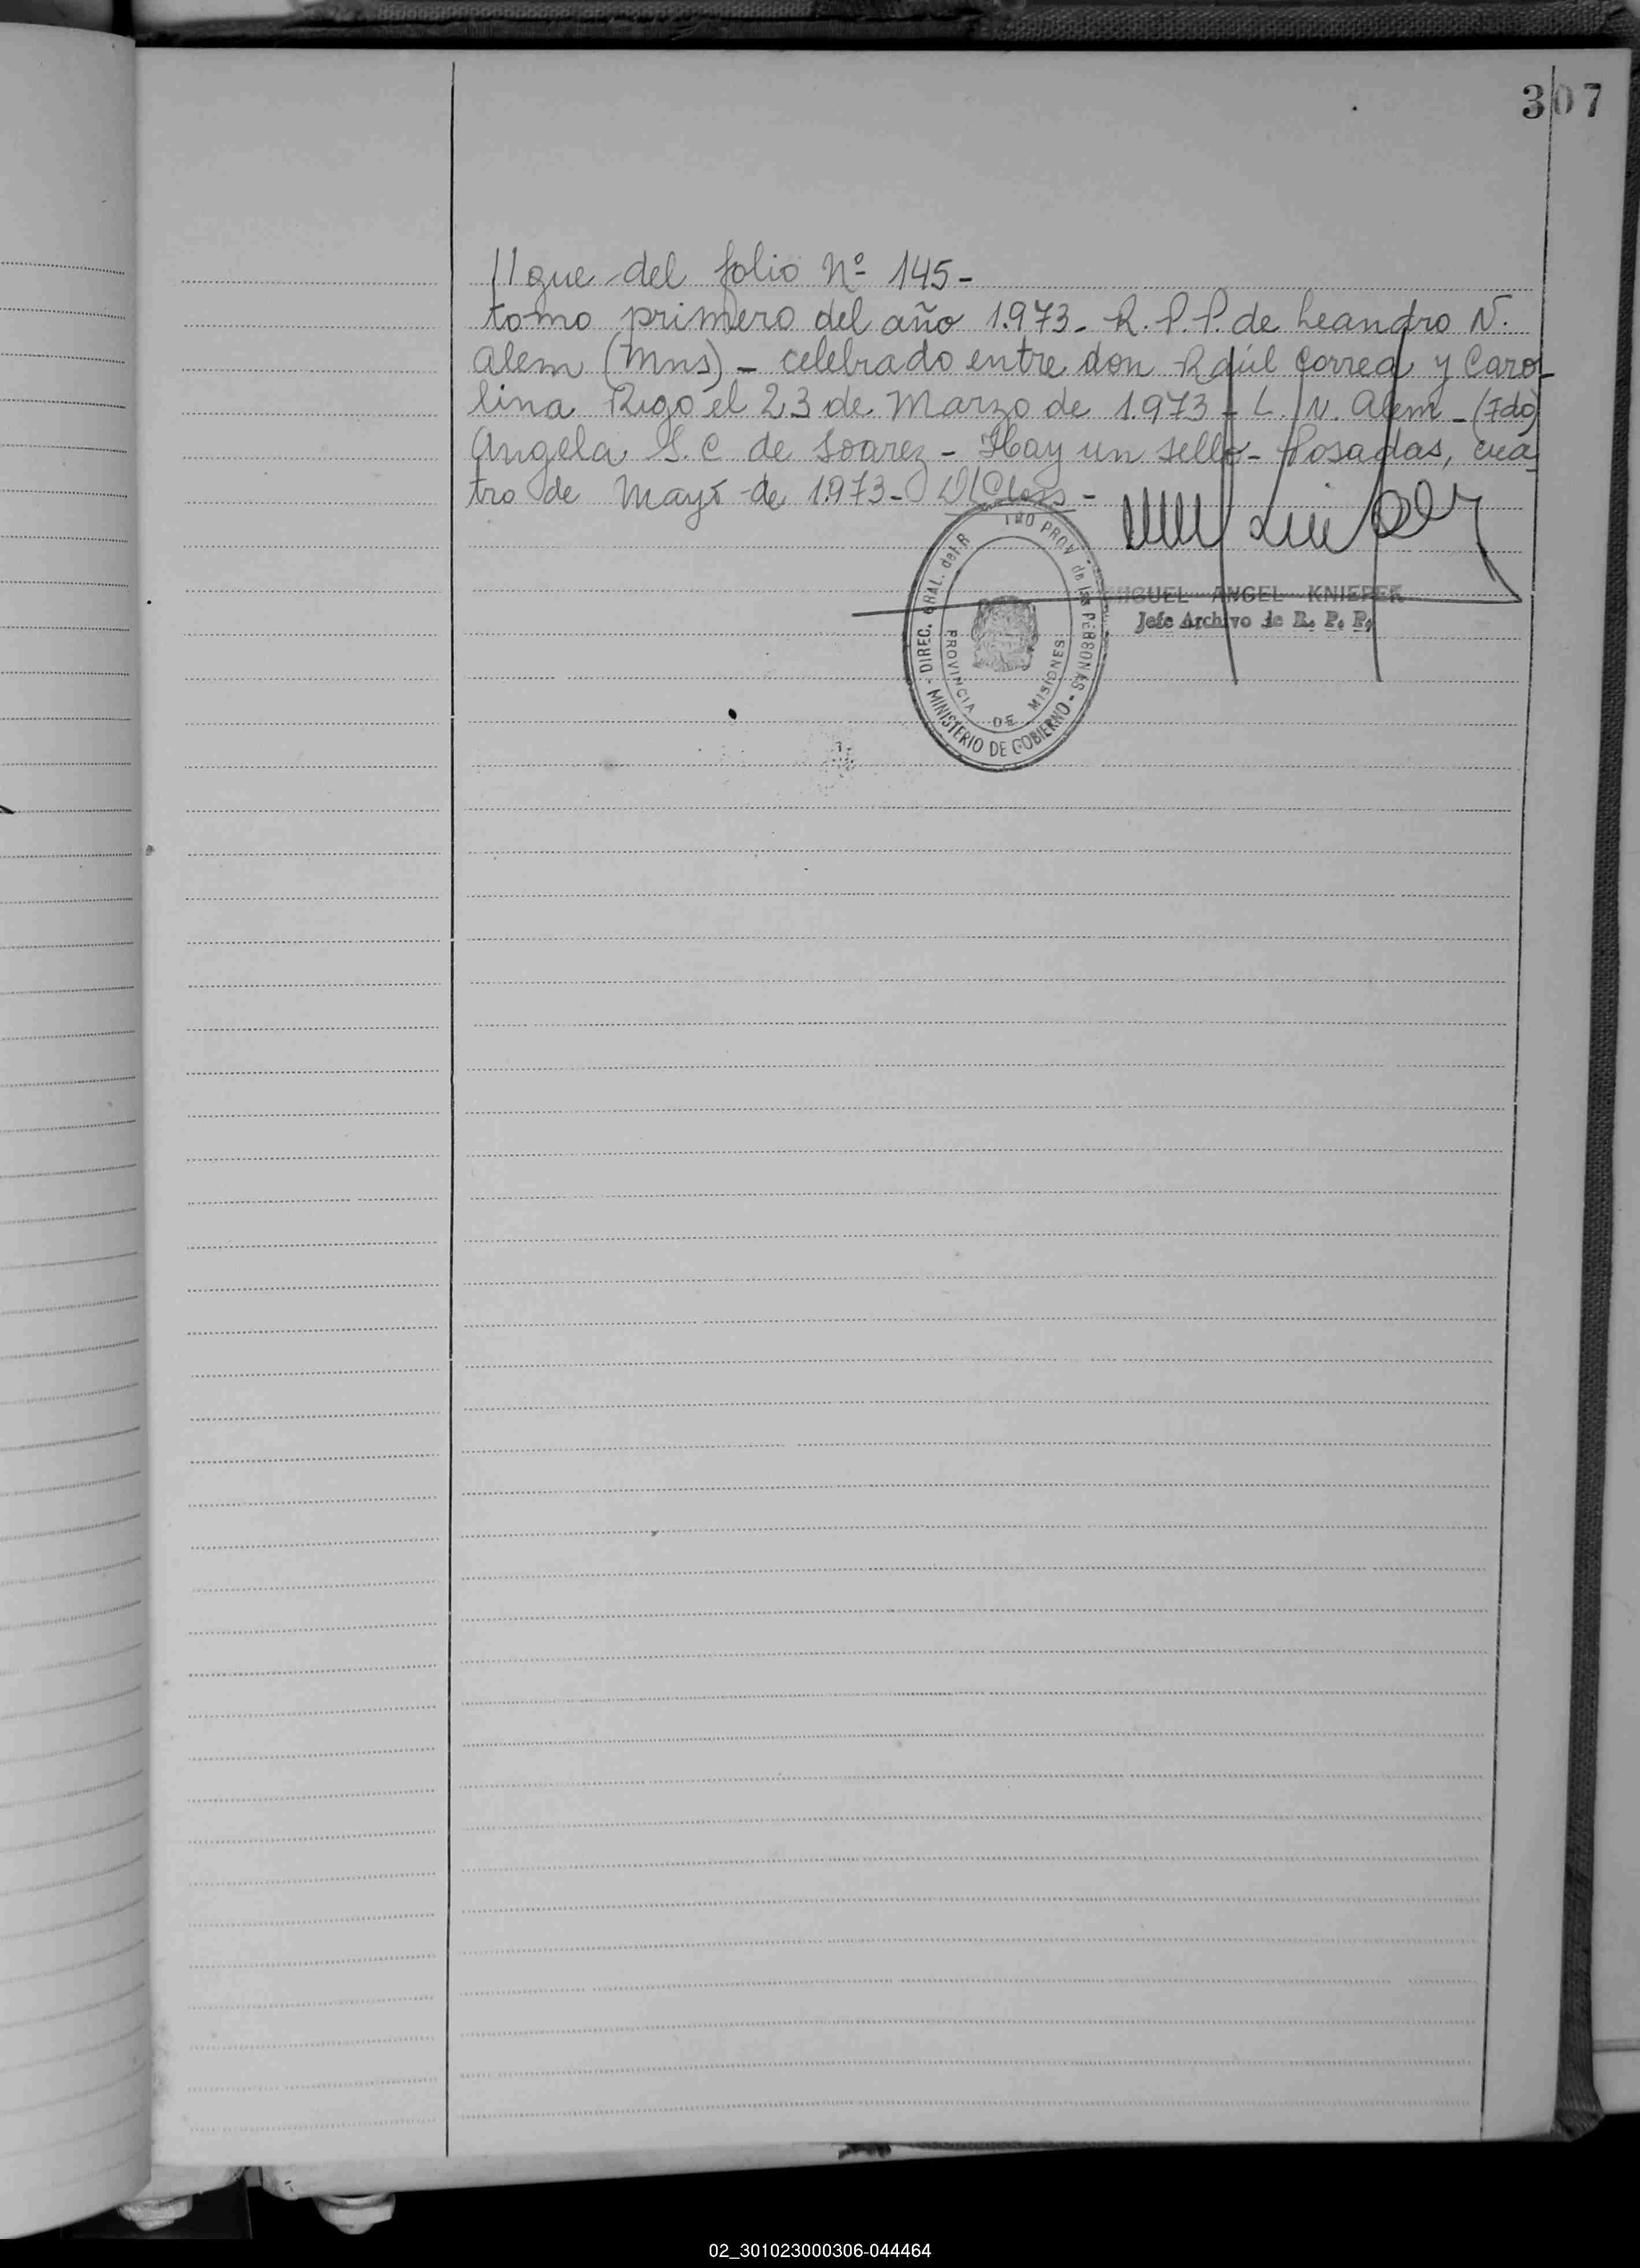 307
//gue del folio Nº 145-
tomo primero del año 1.973- R.P.P. de Leandro N.
Alem (Mns) - celebrado entre don Raúl Correa y Caro-
lina Rigo el 23 de Marzo de 1.973 - L. N. Alem - (Fdo)
Angela S. C. de Soarez - Hay un sello - Posadas, cua
tro de Mayo de 1973-
MIGUEL ANGEL KNIEPER
Jefe Archivo de R. P. P.
DIREC. GRAL. del R PROV de las PERSONAS
MINISTERIO DE GOBIERNO
PROVINCIA DE MISIONES
02_301023000306-044464